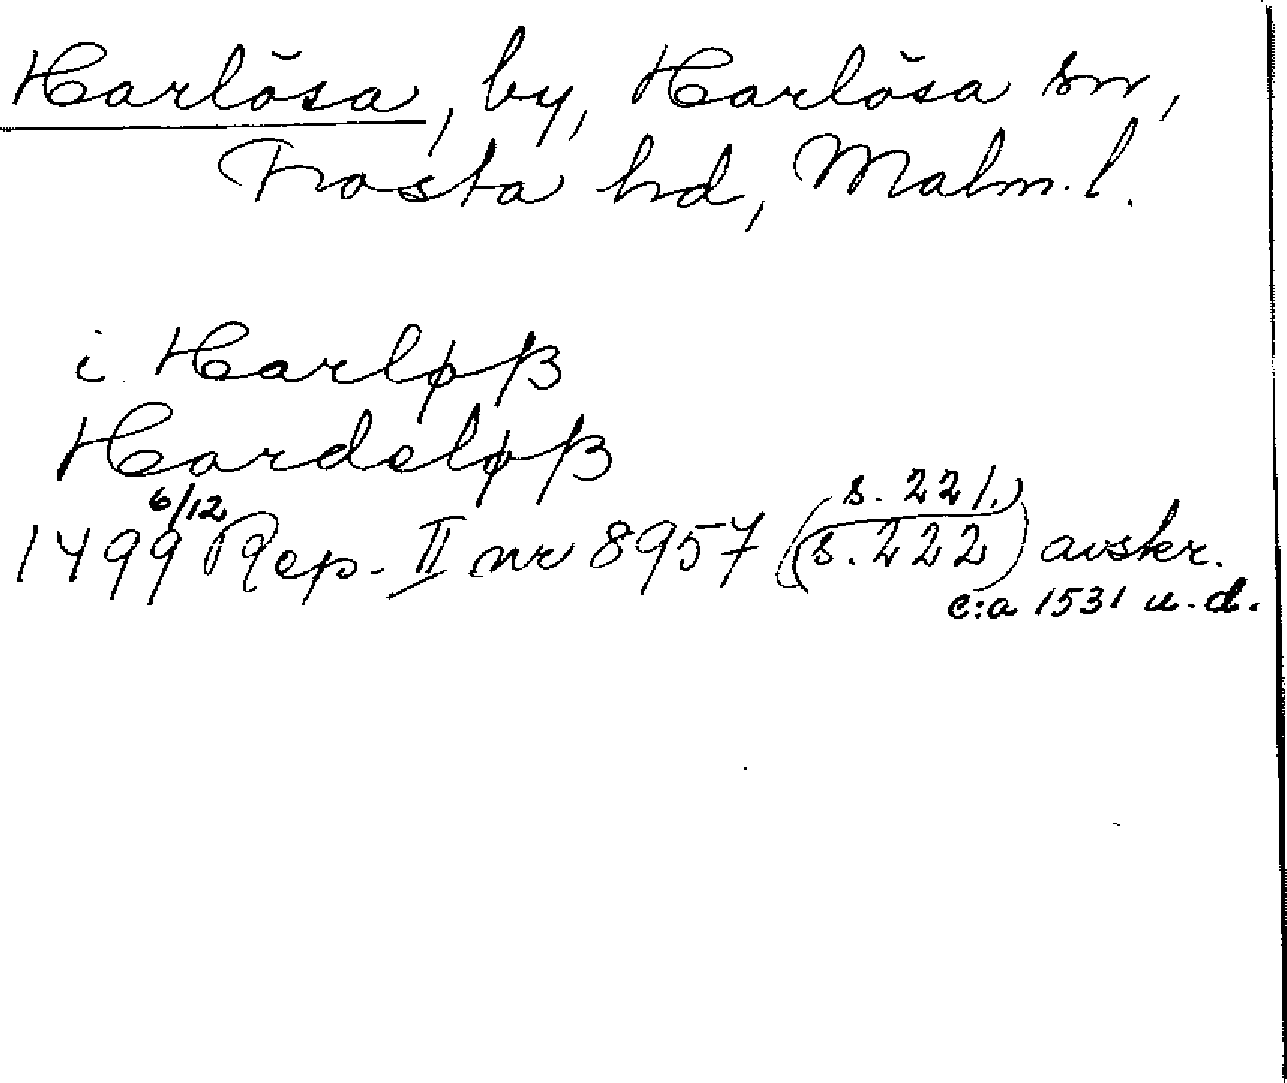 Harlösa, by, Harlösa sn,
Frosta hd, Malm. l.
i Harløß
Hardeløß
6/12 s. 221.
1499 Rep. II nr 8957 (s. 222) avskr.
c:a 1531 u. d.